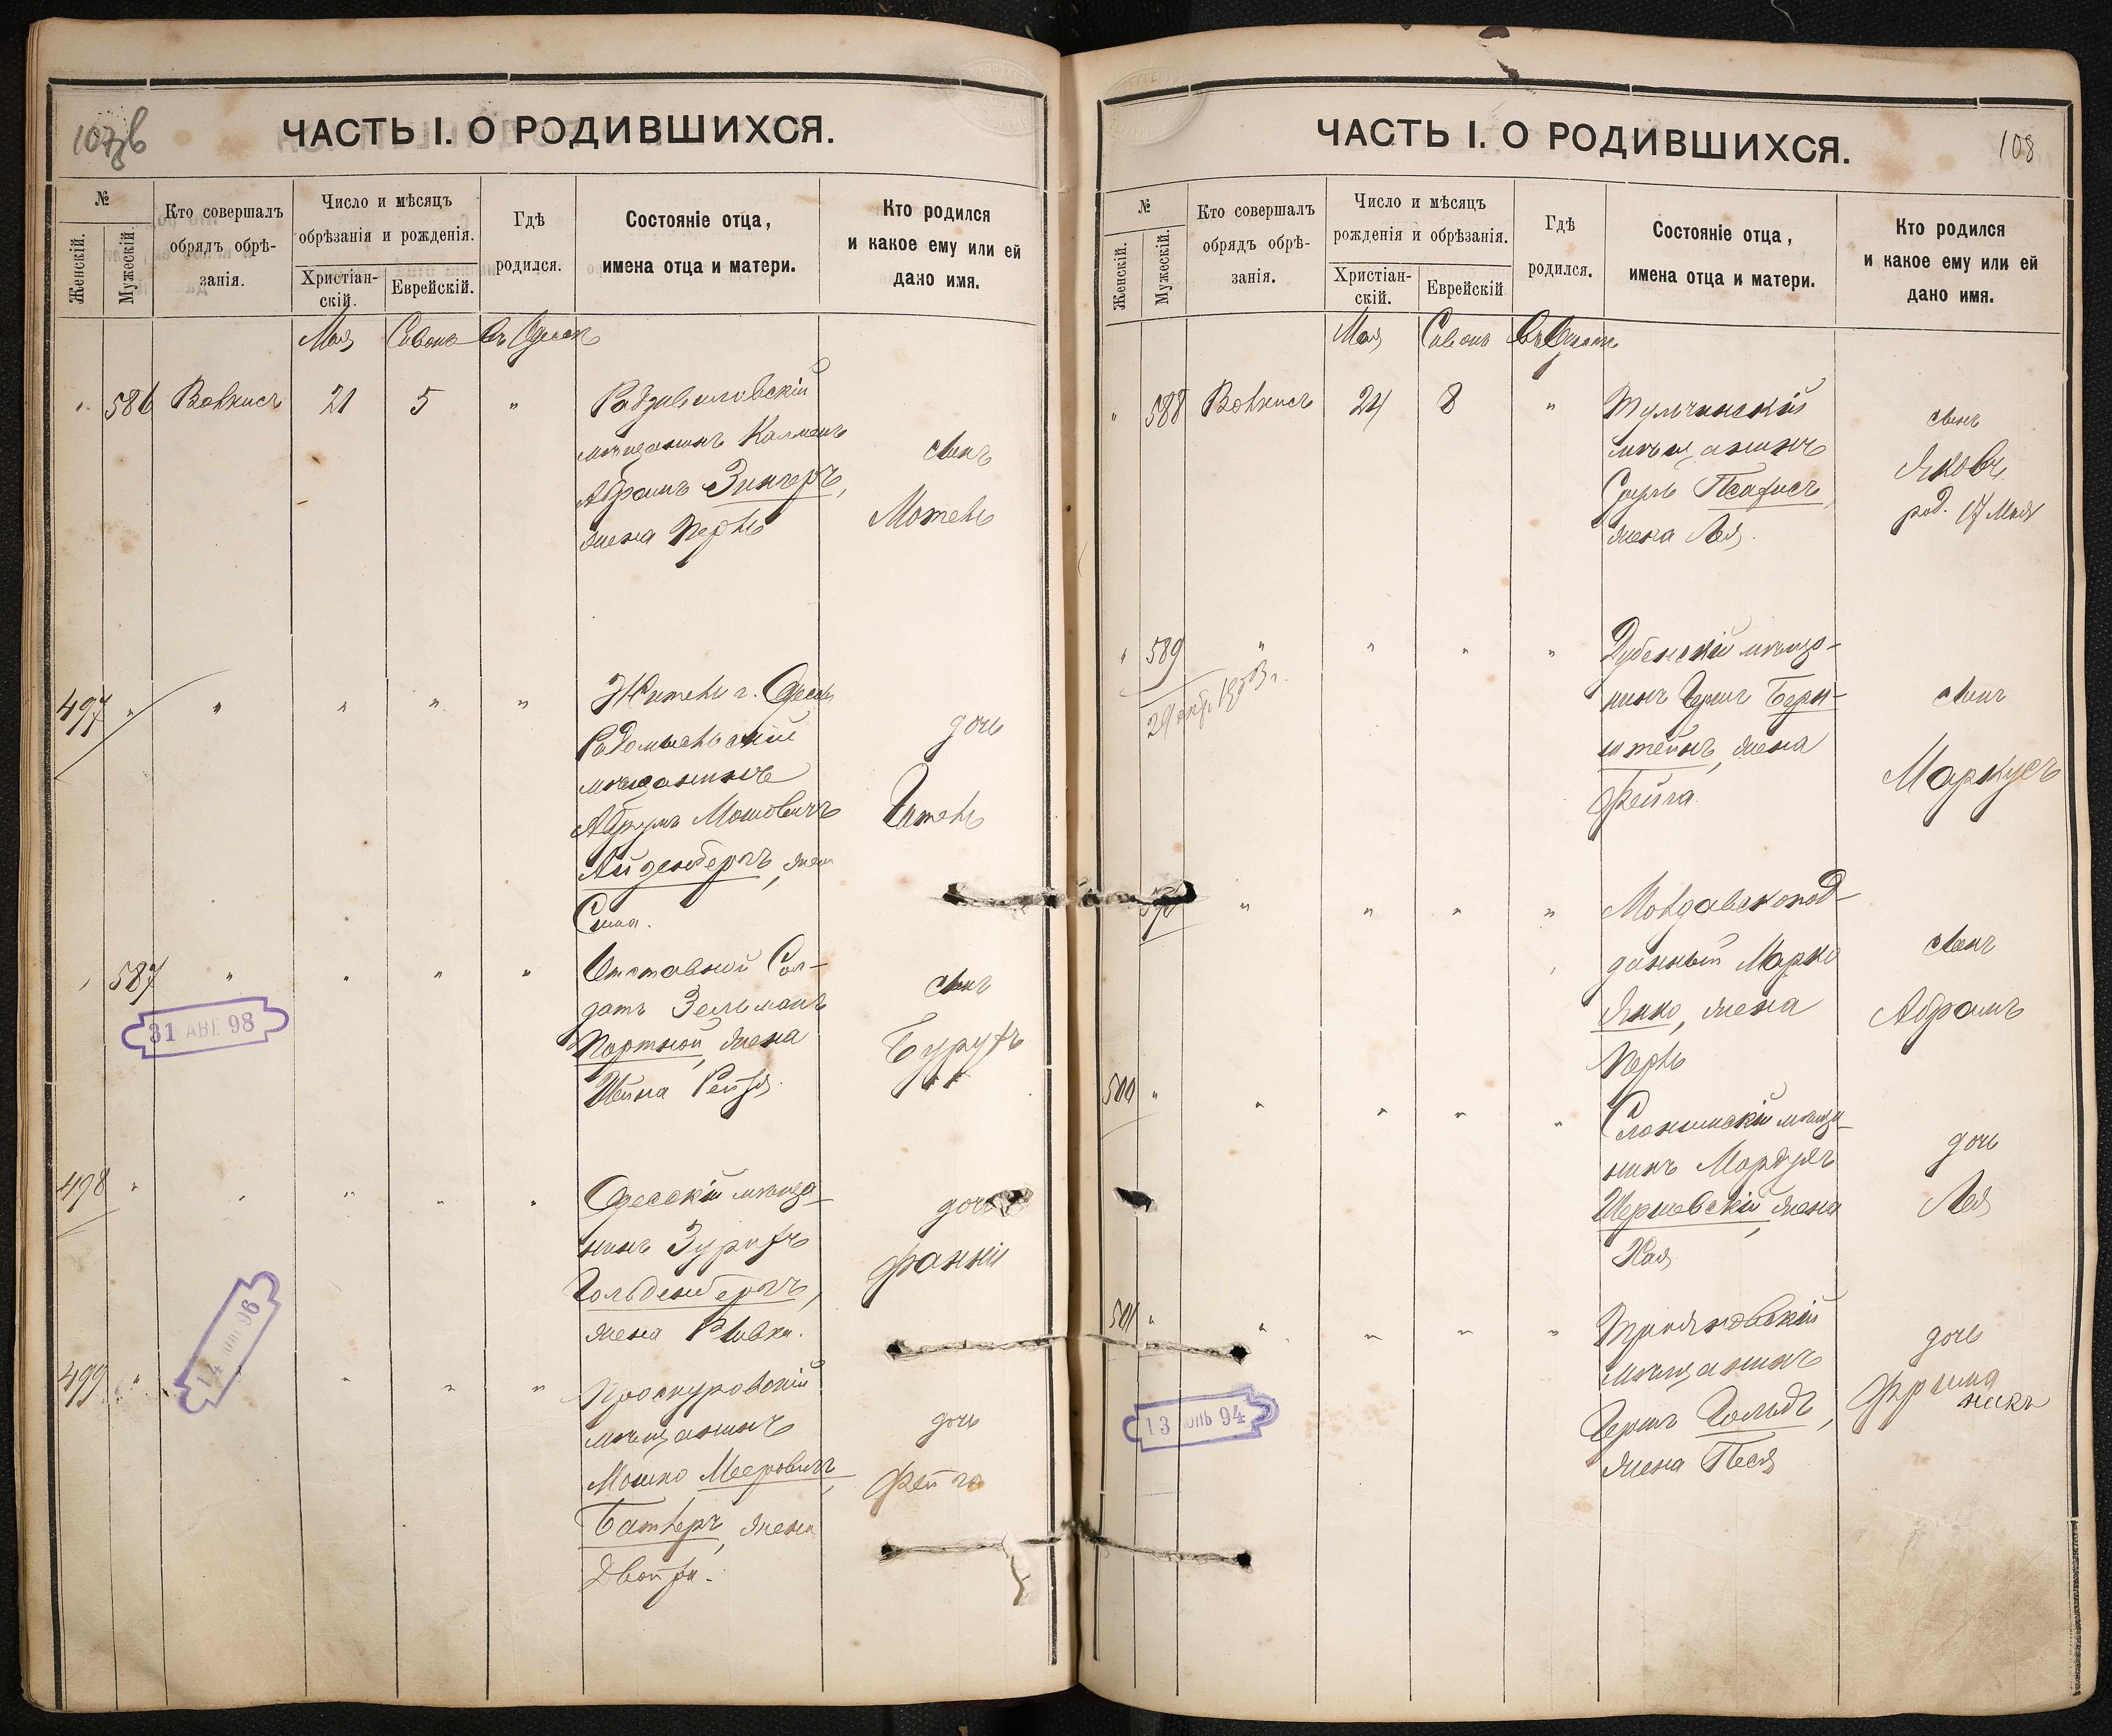 107 зв
ЧАСТЬ I. О РОДИВШИХСЯ.
№
Женскій.
Мужескій.
Кто совершалъ
обрядъ обрѣ-
занія.
Число и мѣсяцъ
обрѣзанія и рожденія.
Христіан-
скій.
Еврейскій.
Гдѣ
родился.
Состояніе отца,
имена отца и матери.
Кто родился
и какое ему или ей
дано имя.
Мая Сивонъ въ Одессѣ
" 586 Волкисъ 21 5 "
Радзивиловскій
мѣщанинъ Калманъ
Абрамъ Зингеръ,
жена Перль
сынъ
Мотель
497 " " " " "
Житель г. Одессы
Радомысльскій
мѣщанинъ
Абрумъ Мошовичъ
Айденбергъ, жена
Сима.
дочь
Гитель
" 587 " " " "
Отставной Сол-
датъ Зельманъ
Портной, жена
Шейна Рейзя.
сынъ
Бурухъ
31 АВГ. 98
498 " " " " "
Одесскій мѣща-
нинъ Зурихъ
Гольденбергъ,
жена Ривка.
дочь
Фанни
14 96
499 " " " "
Проскуровскій
мѣщанинъ
Мошко Мееровичъ
Батлеръ, жена
Двойра.
дочь
Фейга
108
ЧАСТЬ I. О РОДИВШИХСЯ.
№
Женскій.
Мужескій.
Кто совершалъ
обрядъ обрѣ-
занія.
Число и мѣсяцъ
рожденія и обрѣзанія.
Христіан-
скій.
Еврейскій
Гдѣ
родился.
Состояніе отца,
имена отца и матери.
Кто родился
и какое ему или ей
дано имя.
Мая Сивонъ въ Одессѣ
" 588 Волкисъ 24 8 "
Тульчинскій
мѣщанинъ
Сруль Псахисъ,
жена Лея.
сынъ
Яковъ
род. 17 Мая
" 589 " " " "
Дубенскій мѣща-
нинъ Гершъ Берн-
штейнъ, жена
Фейга.
сынъ
Маркусъ
" " " "
Молдавскопод-
данный Марко
Янко, жена
Перль
сынъ
Абрамъ
500 " " " " "
Слонимскій мѣща-
нинъ Мордухъ
Шершевскій, жена
Хая
дочь
Лея
501 " " " " "
Трояновскій
мѣщанинъ
Гершъ Гольдъ,
жена Песя
дочь
13 94